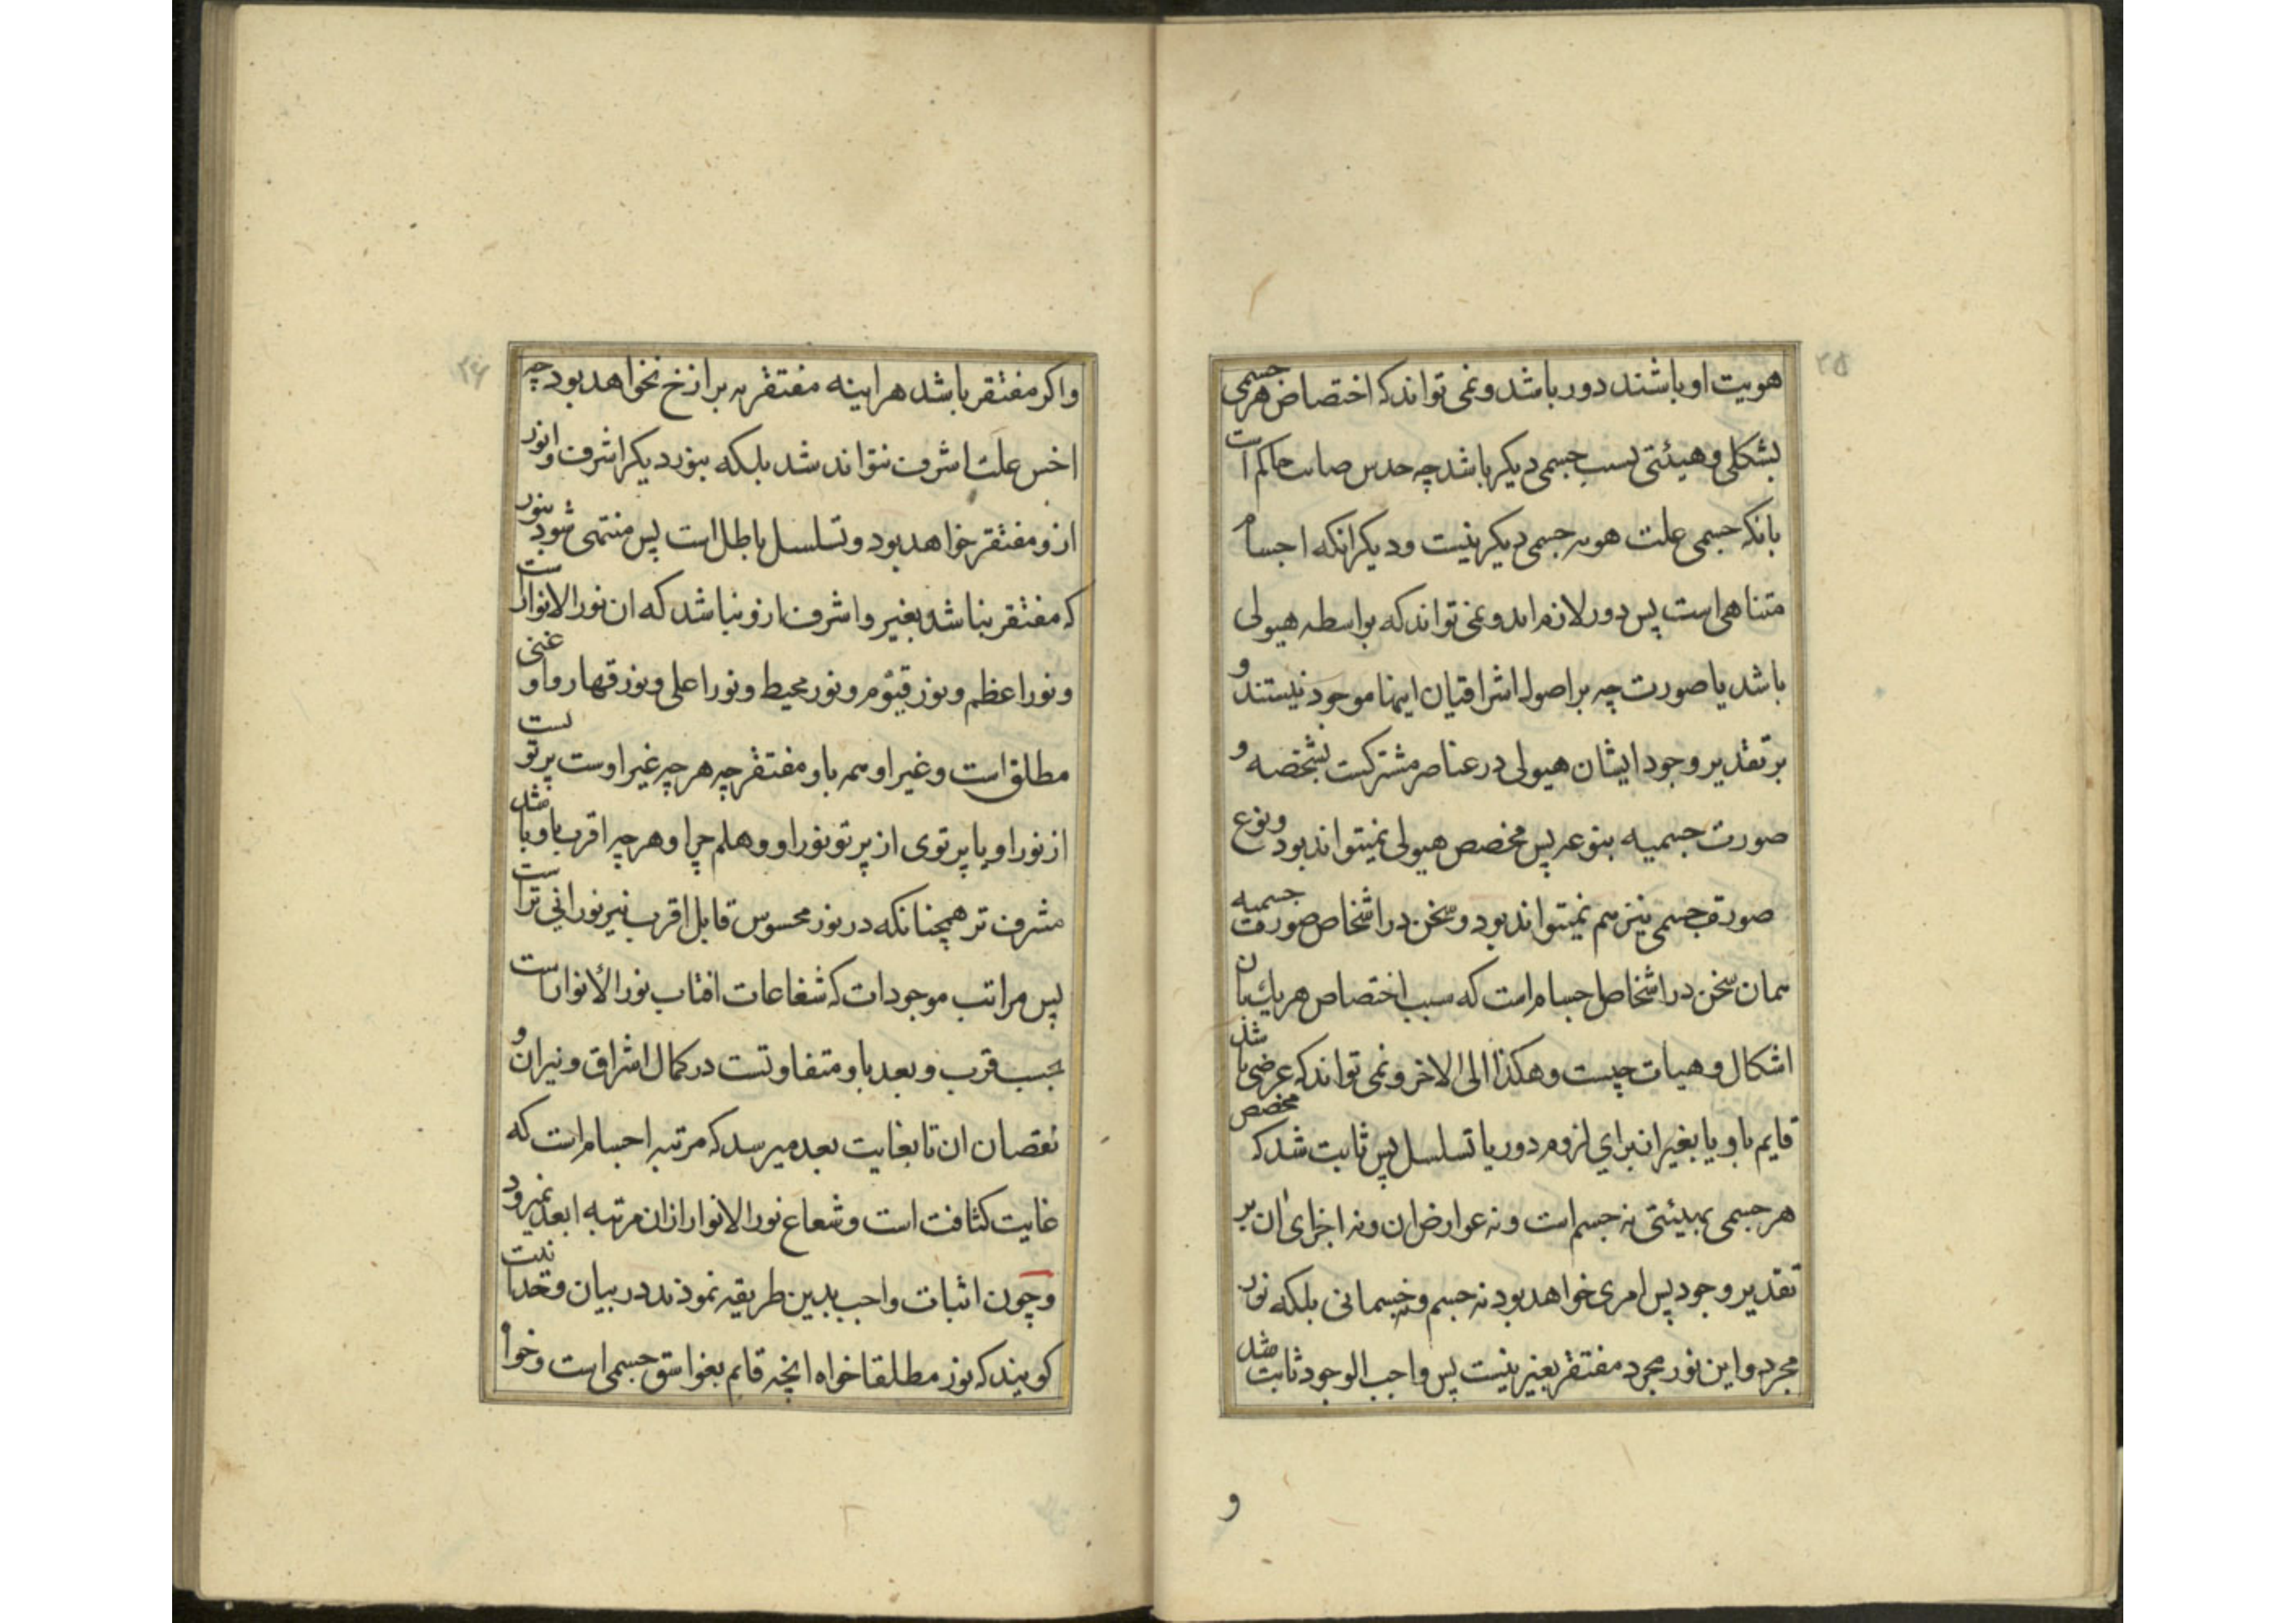 ۲۵
هویت او باشند دور باشد و نمی تواند که اختصاص هر جسمی
بشکلی و هیئتی بسبب جسمی دیکر باشد چه حدس صائب حاکم است
بانکه جسمی علت هویه جسمی دیکر نیست و دیکر انکه اجسام
متناهی است پس دور لازم اید و نمی تواند که بواسطه هیولی
باشد یا صورت چه بر اصول اشراقیان اینها موجود نیستند و
بر تقدیر وجود ایشان هیولی در عناصر مشترکست بشخصه و
صورت جسمیه بنوعه پس مخصص هیولی نمیتواند بود و نوع
صورت جسمی نیز هم نمیتواند بود و سخن در اشخاص صورت جسمیه
همان سخن در اشخاص اجسام است که سبب اختصاص هر یك بان
اشکال و هیات چیست و هکذا الی الاخر و نمی تواند که عرضی باشد
قایم باو یا بغیر ان برای لزوم دور یا تسلسل پس ثابت شد که مخصص
هر جسمی بهیئتی نه جسم است و نه عوارض ان و نه اجزای ان بر
تقدیر وجود پس امری خواهد بود نه جسم و نه جسمانی بلکه نور
مجرد و این نور مجرد مفتقر بغیر نیست پس واجب الوجود ثابت شد
و
۲۶
و اکر مفتقر باشد هراینه مفتقر به برازخ نخواهد بود چه
اخس علت اشرف نتواند شد بلکه بنور دیکر اشرف و انور
ازو مفتقر خواهد بود و تسلسل باطل است پس منتهی شود بنور
که مفتقر نباشد بغیر و اشرف ازو نباشد که ان نور الانوار است
و نور اعظم و نور قیوم و نور محیط و نور اعلی و نور قهار و او غنی
مطلق است و غیر او همه باو مفتقر چه هر چه غیر اوست پرتو یست
از نور او یا پرتوی از پرتو نور او و هلم جرا و هر چه اقرب باو باشد
مشرف تر همچنانکه در نور محسوس قابل اقرب نیر نورانی تر است
پس مراتب موجودات که شعاعات افتاب نور الأنوار است
بحسب قرب و بعد باو متفاوتست در کمال اشراق و نیران و
نقصان ان تا بغایت بعد میرسد که مرتبه اجسام است که
غایت کثافت است و شعاع نور الانوار ازان مرتبه ابعد نمیرود
و چون اثبات واجب بدین طریقه نمودند در بیان وحدانیت
کویند که نور مطلقا خواه انچه قایم بغواسق جسمی است و خواه